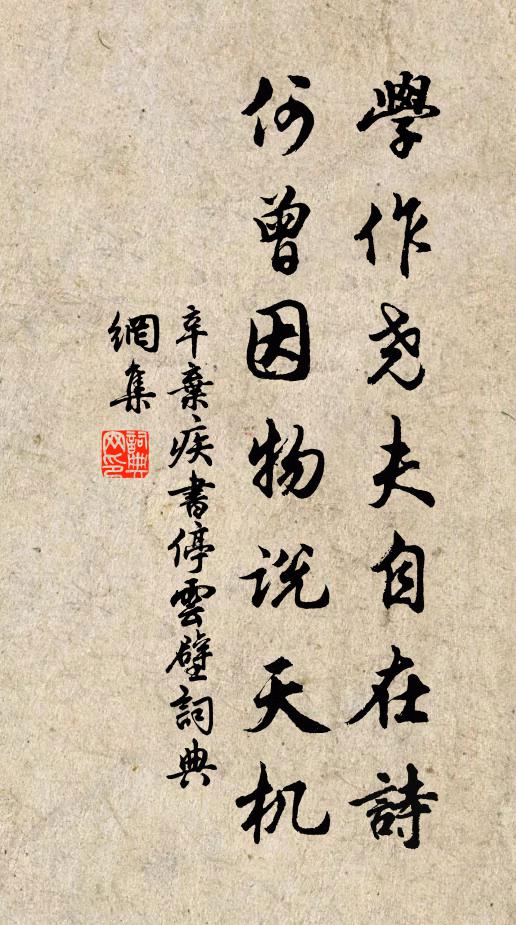 學作尧夫自在詩
何曾因物说天机
辛棄疾書停雲壁詞典
網集
詞典網印